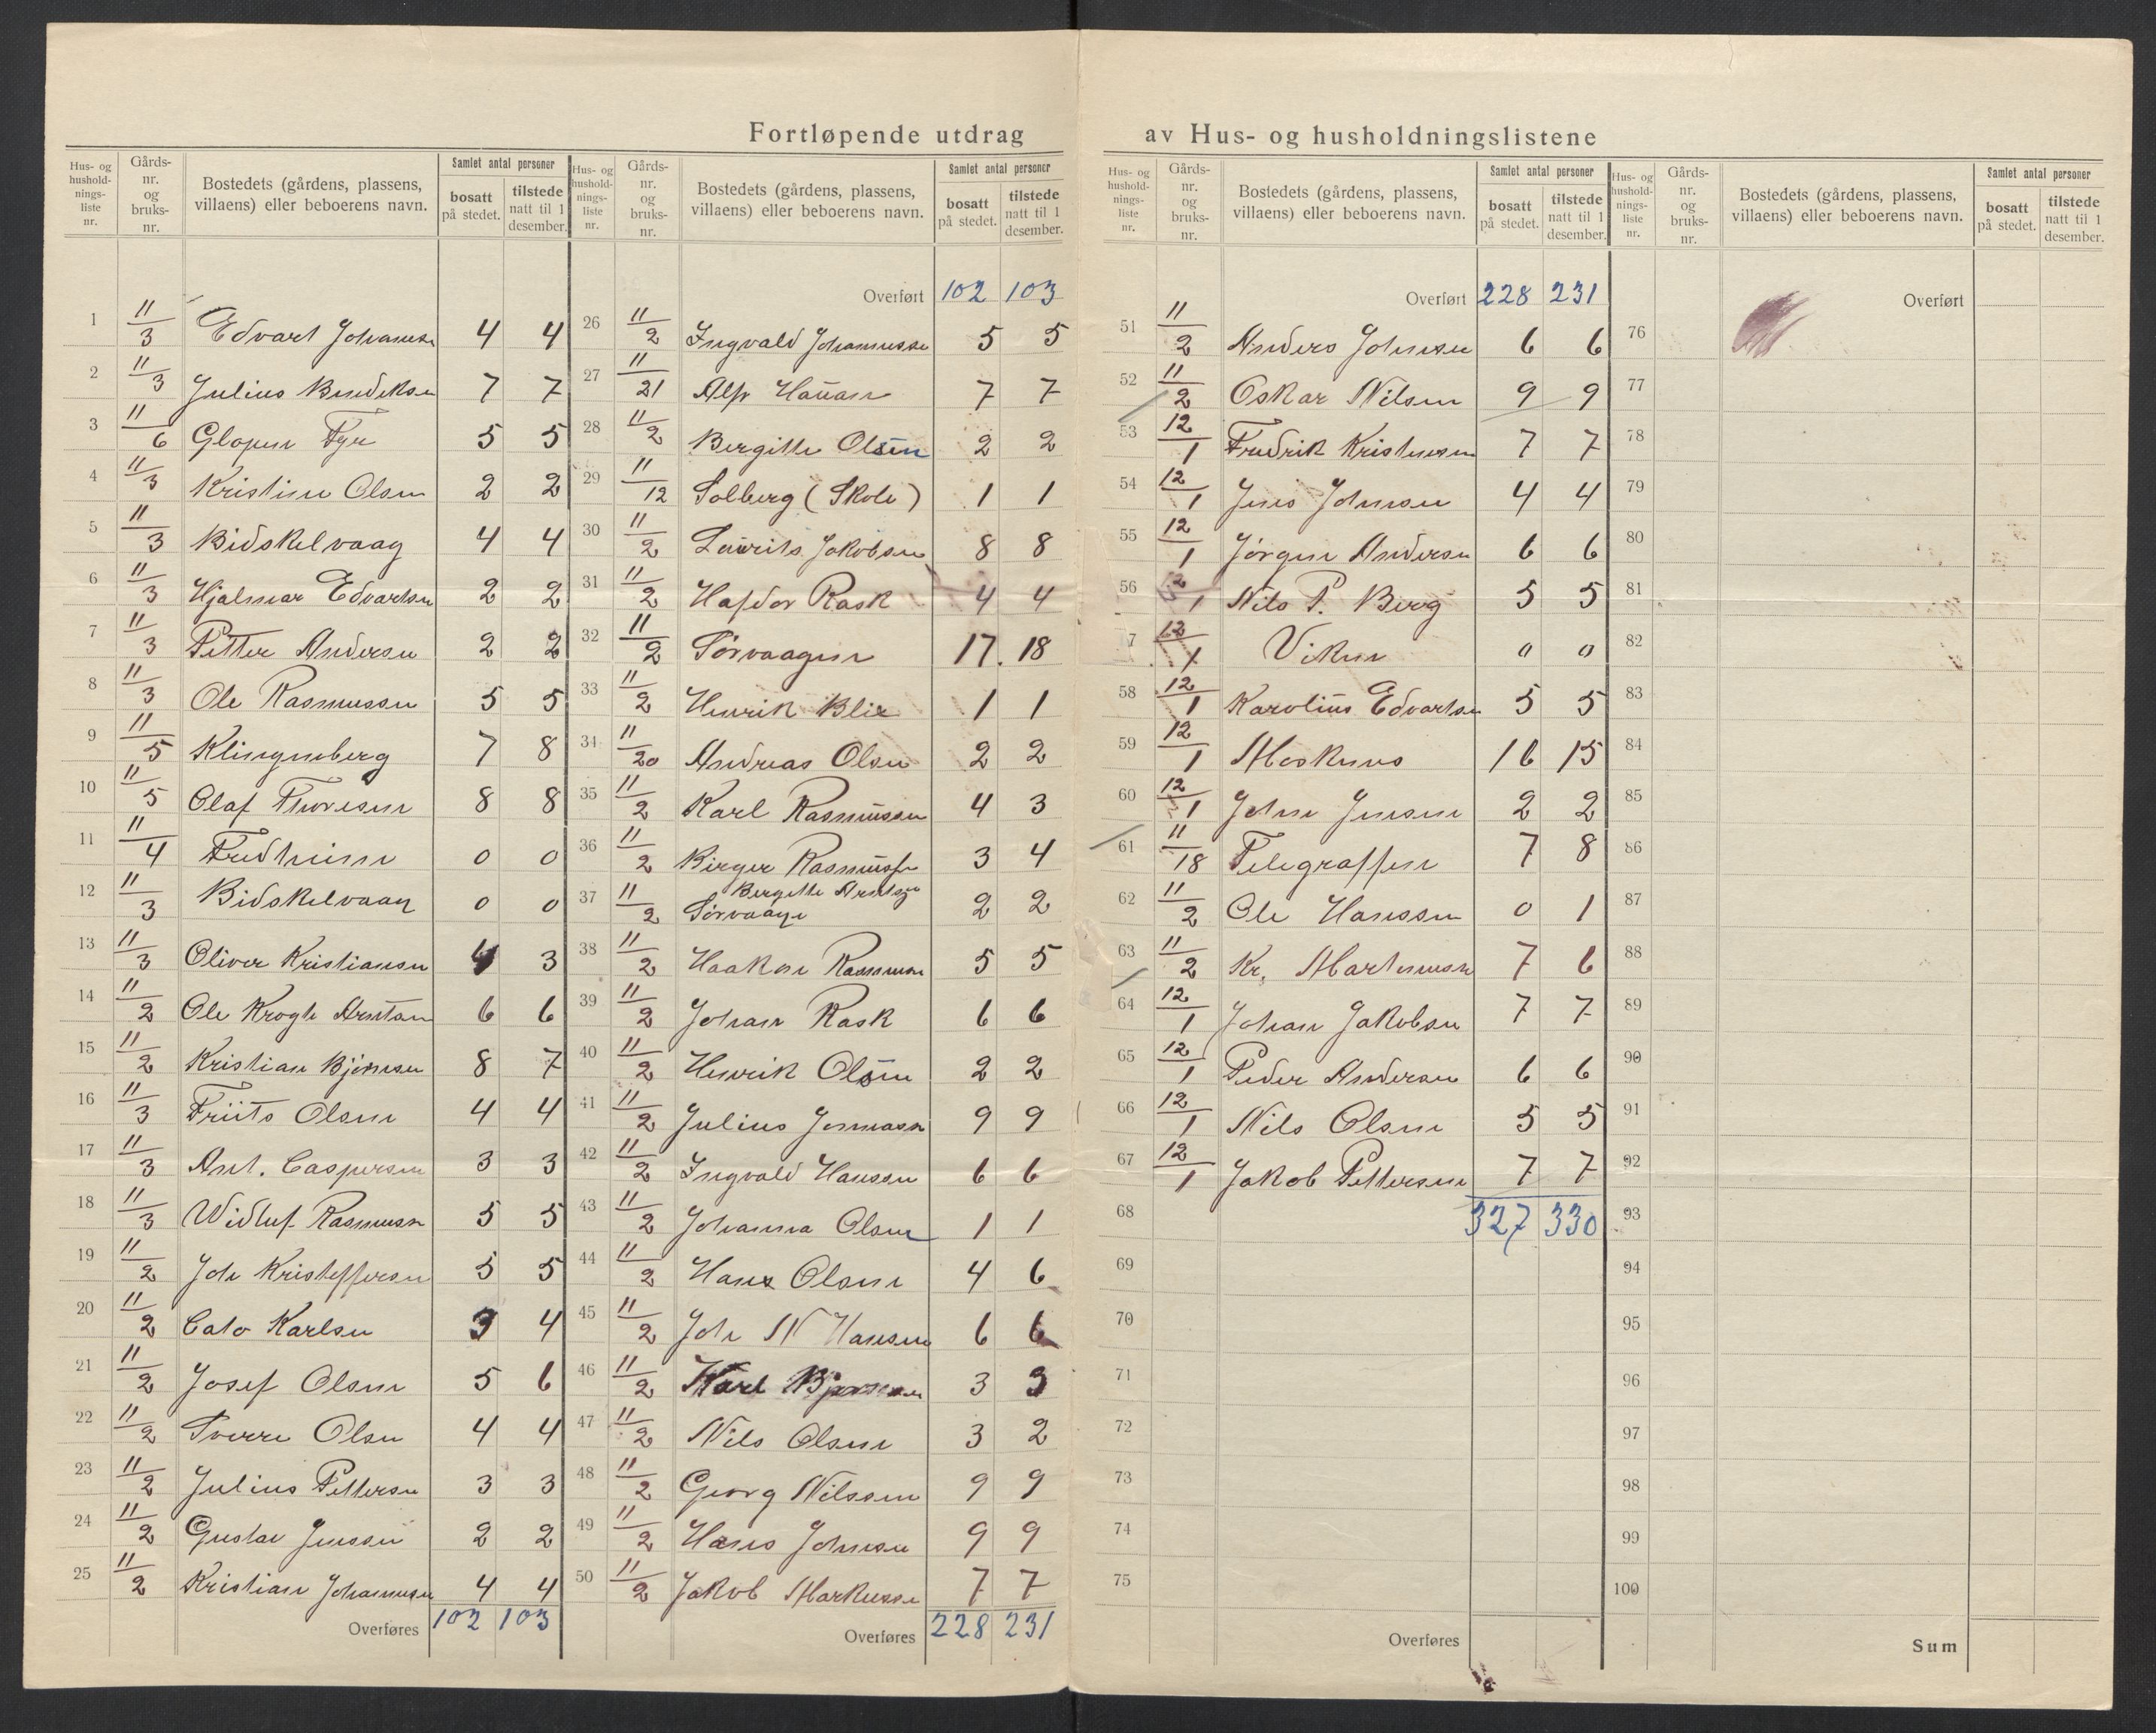 Fortløpende utdrag av Hus- og husholdningslistene
Hus- og hushold-nings-liste nr. Gårds-nr. og bruks-nr. Bostedets (gårdens, plassens, villaens) eller beboerens navn. Samlet antal personer bosatt på stedet. tilstede natt til 1 desember.
1 11/3 Edvart Johansen 4 4
2 11/3 Julius Bendiksen 7 7
3 11/6 5 5
4 11/3 Kristine Olsen 2 2
5 11/3 Bidskelvaag 4 4
6 11/3 Hjalmar Edvartsen 2 2
7 11/3 Petter Andersen 2 2
8 11/3 Ole Rasmussen 5 5
9 11/5 Klingenberg 7 8
10 11/5 Olaf Thoresen 8 8
11 11/4 Fredheim 0 0
12 11/3 Bidskelvaag 0 0
13 11/3 Oliver Kristiansen 4 3
14 11/2 Ole Krogh Arntsen 6 6
15 11/2 Kristian Bjørnsen 8 7
16 11/3 Friits Olsen 4 4
17 11/3 Ant. Caspersen 3 3
18 11/3 Widluf Rasmussen 5 5
19 11/2 Joh Kristoffersen 5 5
20 11/2 Cato Karlsen 3 4
21 11/2 Josef Olsen 5 6
22 11/2 Sverre Olsen 4 4
23 11/2 Julius Pettersen 3 3
24 11/2 Gustav Jenssen 2 2
25 11/2 Kristian Johannesen 4 4
Overføres 102 103
Hus- og hushold-nings-liste nr. Gårds-nr. og bruks-nr. Bostedets (gårdens, plassens, villaens) eller beboerens navn. Samlet antal personer bosatt på stedet. tilstede natt til 1 desember.
Overført 102 103
26 11/2 Ingvald Johannessen 5 5
27 11/21 Alf 7 7
28 11/2 Bergitte Olsen 2 2
29 11/12 Solberg (Skole) 1 1
30 11/2 Laurits Jakobsen 8 8
31 11/2 Hafdor Rask 4 4
32 11/2 Sørvaagen 17. 18
33 11/2 Henrik Blix 1 1
34 11/20 Andreas Olsen 2 2
35 11/2 Karl Rasmussen 4 3
36 11/2 Birger Rasmussen 3 4
37 11/2 Bergitte Arntsen
Sørvaagen 2 2
38 11/2 Haakon Rasmussen 5 5
39 11/2 Johan Rask 6 6
40 11/2 Henrik Olsen 2 2
41 11/2 Julius Jonnassen 9 9
42 11/2 Ingvald Hanssen 6 6
43 11/2 Johanna Olsen 1 1
44 11/2 Hans Olsen 4 6
45 11/2 Joh N Hansen 6 6
46 11/2 Karl Bjørnsen 3 3
47 11/2 Nils Olsen 3 2
48 11/2 Georg Nilssen 9 9
49 11/2 Hans Johnsen 9 9
50 11/2 Jakob Markussen 7 7
Overføres 228 231
Hus- og hushold-nings-liste nr. Gårds-nr. og bruks-nr. Bostedets (gårdens, plassens, villaens) eller beboerens navn. Samlet antal personer bosatt på stedet. tilstede natt til 1 desember.
Overført 228 231
51 11/2 Anders Johnsen 6 6
52 11/2 Oskar Nilsen 9 9
53 12/1 Fredrik Kristensen 7 7
54 12/1 Jens Johnsen 4 4
55 12/1 Jørgen Andersen 6 6
56 12/1 Nils P. Berg 5 5
7 12/1 Viken 0 0
58 12/1 Karolius Edvartsen 5 5
59 12/1 Moskenes 16 15
60 12/1 John Jensen 2 2
61 11/18 Telegraffen 7 8
62 11/2 Ole Hanssen 0 1
63 11/2 Kr. Martinussen 7 6
64 12/1 Johan Jakobsen 7 7
65 12/1 Peder Andersen 6 6
66 12/1 Nils Olsen 5 5
67 12/1 Jakob Pettersen 7 7
68 327 330
69
70
71
72
73
74
75
Overføres
Hus- og hushold-nings-liste nr. Gårds-nr. og bruks-nr. Bostedets (gårdens, plassens, villaens) eller beboerens navn. Samlet antal personer bosatt på stedet. tilstede natt til 1 desember.
Overført
76
77
78
79
80
81
82
83
84
85
86
87
88
89
90
91
92
93
94
95
96
97
98
99
100
Sum